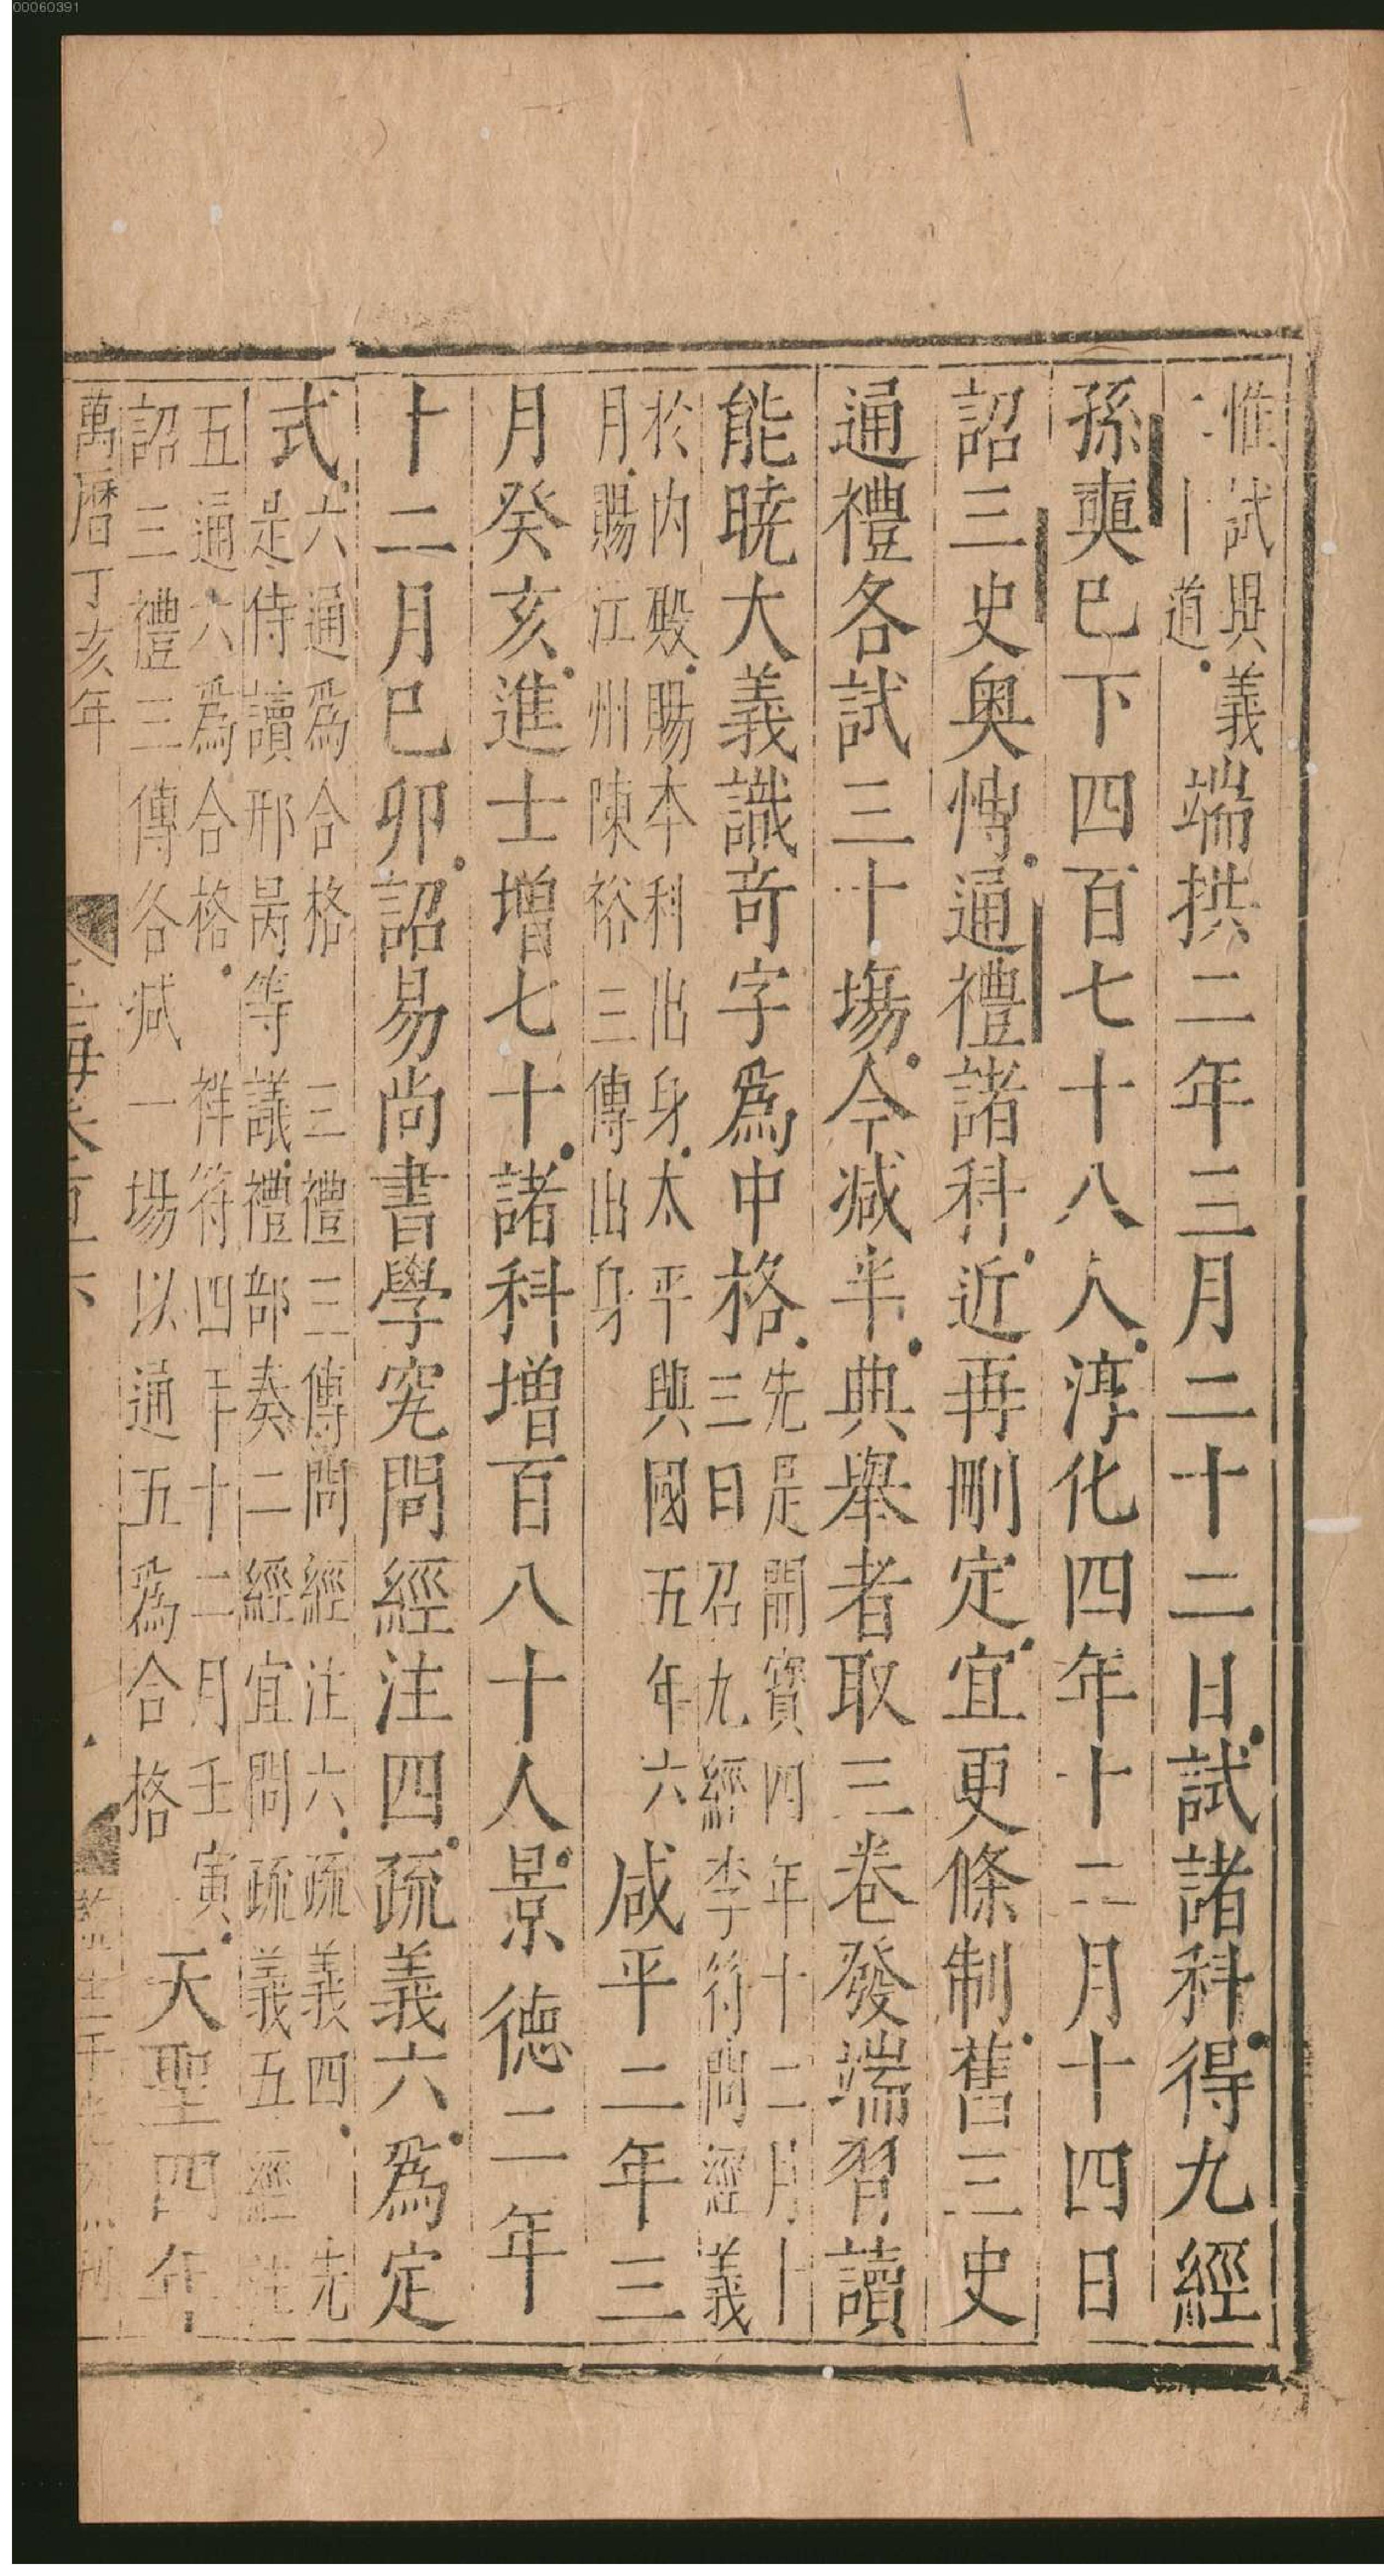 00060391
惟試異義
二十道
端拱二年三月二十二日試諸科得九經
孫奭巳下四百七十八人淳化四年十二月十四日
詔三史奥博通禮諸科近再刪定宜更條制舊三史
通禮各試三十塲今减半典舉者取三卷發端習讀
能曉大義識奇字爲中格
先是開寶四年十二月十
三日召九經李符問經義
於内殿賜本科出身太平興國五年六
月賜江州陳裕三傳出身
咸平二年三
月癸亥進士增七十諸科增百八十人景德二年
十二月巳卯詔易尚書學究問經注四疏義六爲定
式
六通爲合格 三禮三傳問經注六疏義四 先
是侍讀邢昺等議禮部奏二經宜問疏義五經注
五通六爲合格 祥符四年十二月壬寅
詔三禮三傳各减一塲以通五爲合格
天聖四年
萬曆丁亥年